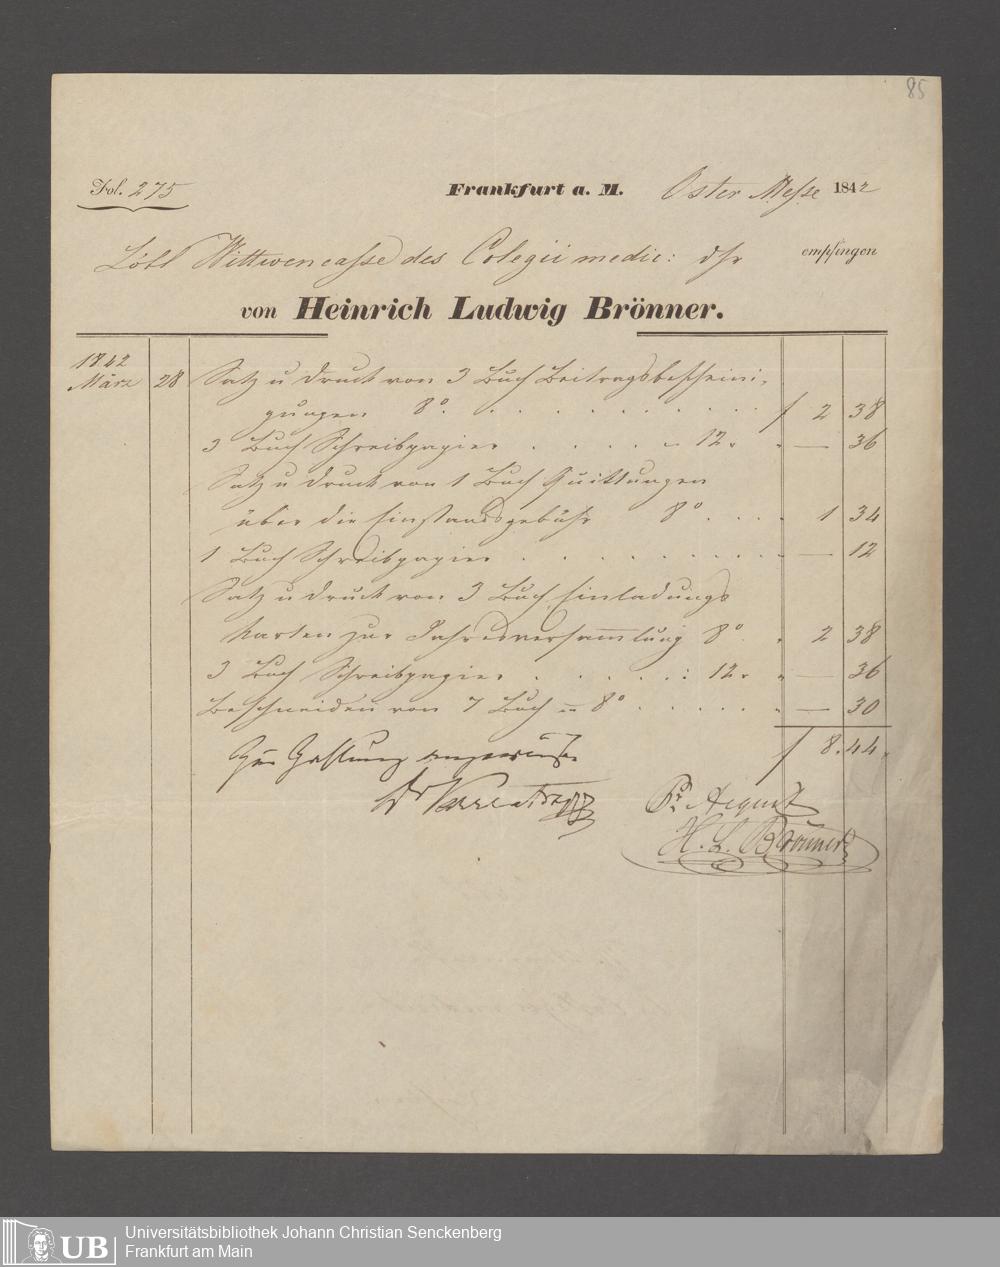 85
Fol. 275
Frankfurt a. M. Oster Messe 1842
Löbl Wittwencasse des Colegii medic: dhr empfingen
von Heinrich Ludwig Brönner.
1842
März 28 Satz u Druck von 3 Buch Beitragsbescheini-
gungen 8º. f 2 38
3 Buch Schreibpapier 12. " — 36
Satz u Druck von 1 Buch Quittungen
über die Einstandsgebühr 8º. " 1 34
1 Buch Schreibpapier " — 12
Satz u Druck von 3 Buch Einladungs
Karten zur Jahresversammlung 8º " 2 38
3 Buch Schreibpapier 12. " — 36
Beschneiden von 7 Buch in 8º " — 30
f 8.44.
Zur Zahlung angewiesen
Dr Varrentrapp
Pr. Acquit
H. L. Brönner
Universitätsbibliothek Johann Christian Senckenberg
Frankfurt am Main
UB